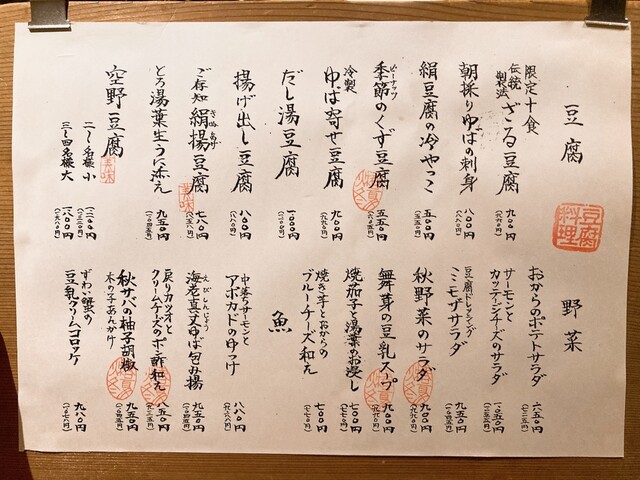 豆腐
豆腐料理
限定十食
伝統製法 ざる豆腐 九〇〇円
(九九〇円)
朝採りゆばの刺身 八〇〇円
(八八〇円)
絹豆腐の冷やっこ 五〇〇円
(五五〇円)
季節のくず豆腐 五五〇円
ピーナッツ
冷製 ゆば寄せ豆腐 九〇〇円
(九九〇円)
だし湯豆腐 一〇〇〇円
(一一〇〇円)
揚げ出し豆腐 八〇〇円
(八八〇円)
ご存知 絹揚豆腐 七八〇円
きぬあげ
とろ湯葉生うに添え 九五〇円
(一〇四五円)
空野豆腐
美味
二〜三名様 小 一二〇〇円
三〜四名様 大 一八〇〇円
野菜
おからのポテトサラダ 六五〇円
(七一五円)
サーモンと
カッテージチーズのサラダ 一〇五〇円
(一一五五円)
豆腐ドレッシング
ミモザサラダ 九五〇円
(一〇四五円)
秋野菜のサラダ 九〇〇円
(九九〇円)
舞茸の豆乳スープ 九〇〇円
(九九〇円)
焼茄子と湯葉のお浸し 七〇〇円
(七七〇円)
焼き芋とおからの
ブルーチーズ和え 七〇〇円
(七七〇円)
魚
中巻きサーモンと
アボカドのゆっけ 八八〇円
(九六八円)
えびしんじょう
海老真丈ゆば包み揚 九五〇円
(一〇四五円)
戻りカツオと
クリームチーズのポン酢和え 八五〇円
(九三五円)
秋サバの柚子胡椒
木の子あんかけ 九五〇円
(一〇四五円)
ずわい蟹の
豆乳クリームコロッケ 九八〇円
(一〇七八円)